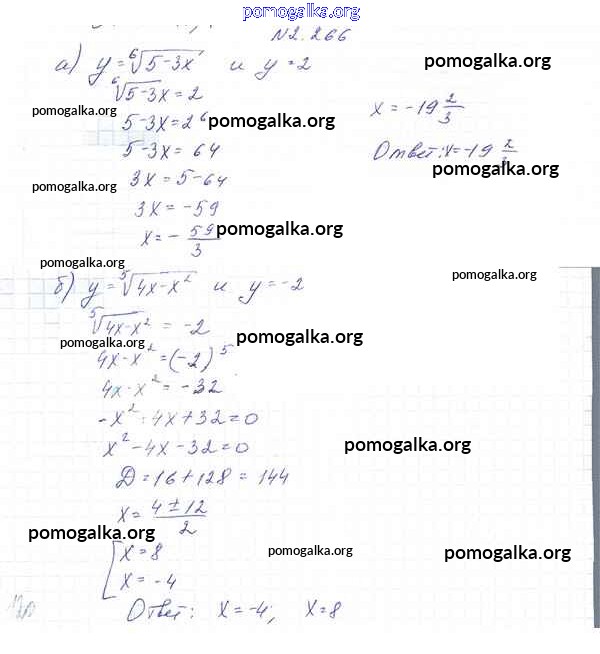 pomogalka.org
№2.266
а) y = ⁶√(5-3x) и y = 2
pomogalka.org
⁶√(5-3x) = 2
pomogalka.org
x = -19 2/3
5-3x = 2⁶
pomogalka.org
5-3x = 64
Ответ: x = -19 2/3
pomogalka.org
3x = 5-64
pomogalka.org
3x = -59
x = - 59/3
pomogalka.org
pomogalka.org
pomogalka.org
б) y = ⁵√(4x-x²) и y = -2
⁵√(4x-x²) = -2
pomogalka.org
pomogalka.org
4x-x² = (-2)⁵
4x-x² = -32
-x²+4x+32=0
x²-4x-32=0
pomogalka.org
D = 16+128 = 144
x = (4±12)/2
pomogalka.org
[ x = 8
pomogalka.org
pomogalka.org
x = -4
Ответ: x = -4; x = 8